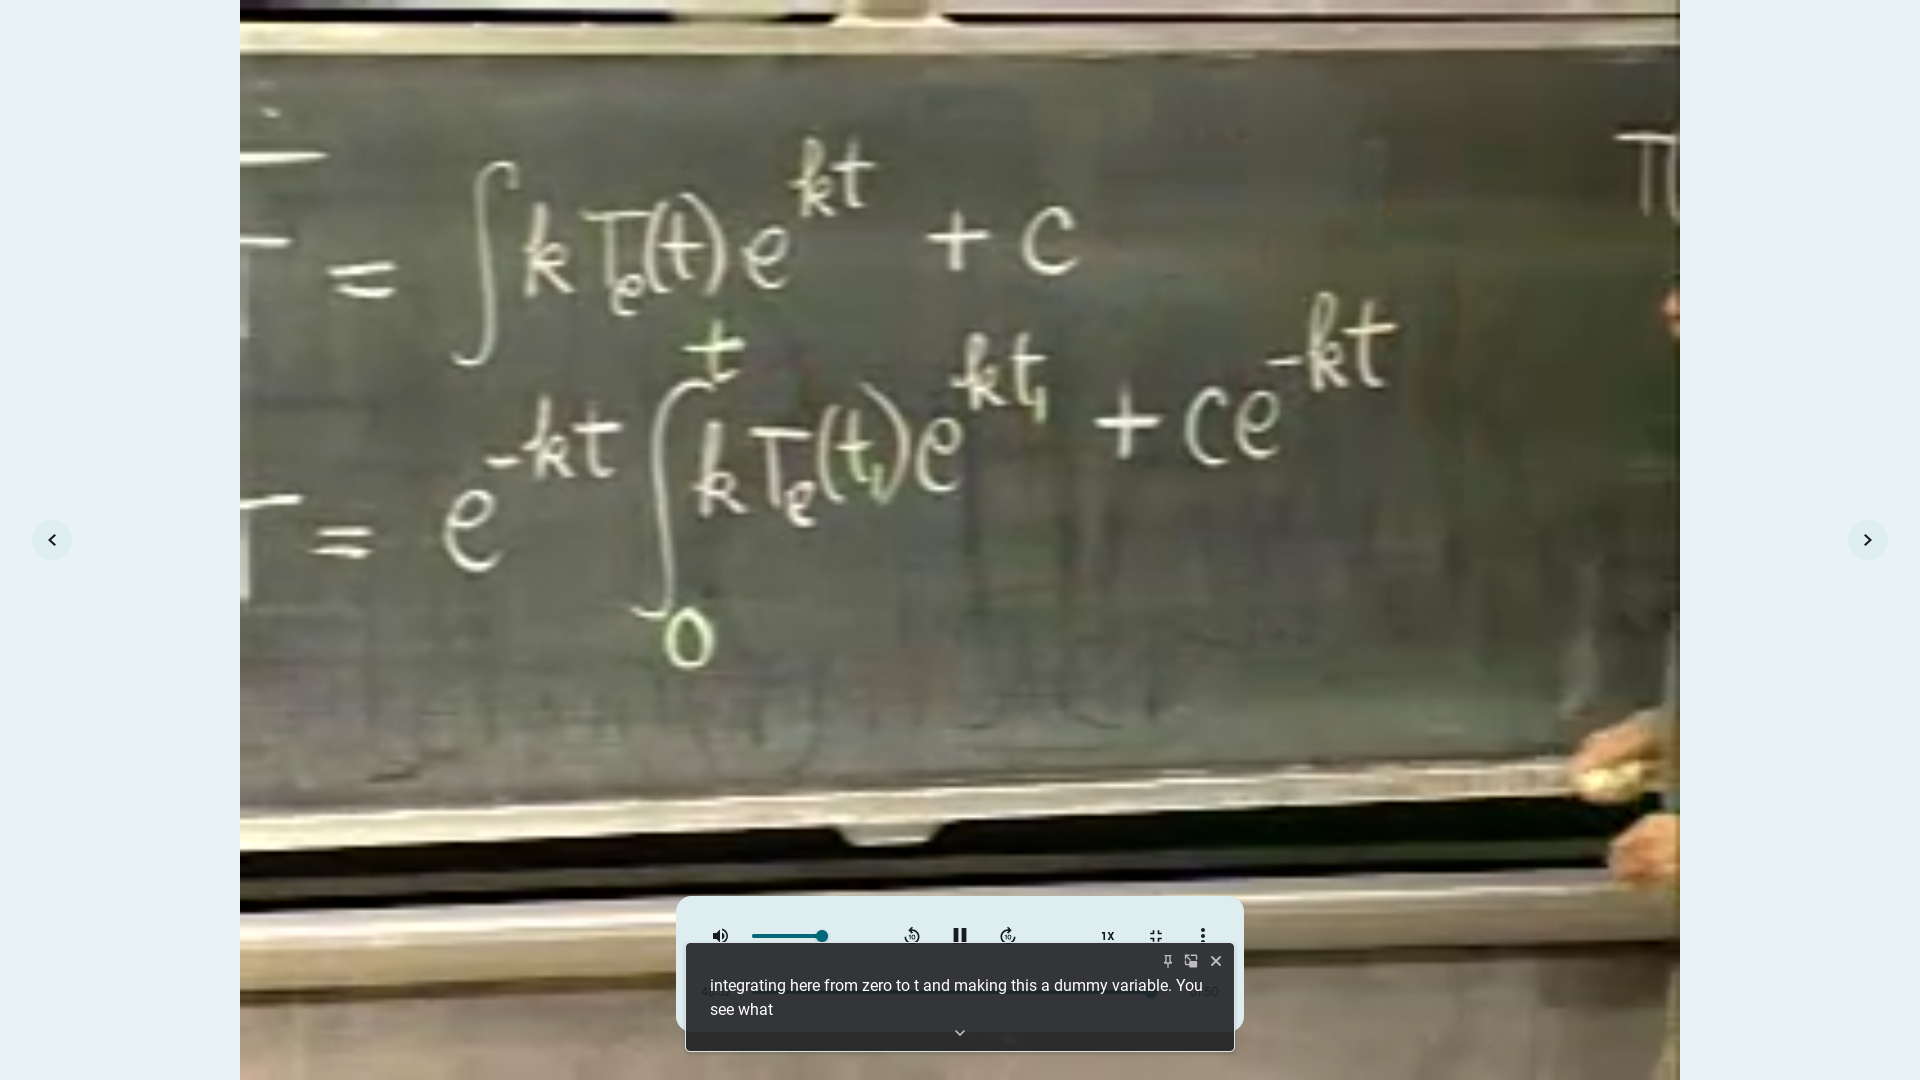 T = ∫ k Tₑ(t) e^{kt} + c
T = e^{-kt} ∫₀ᵗ k Tₑ(t₁) e^{kt₁} + ce^{-kt}
1X
integrating here from zero to t and making this a dummy variable. You
see what